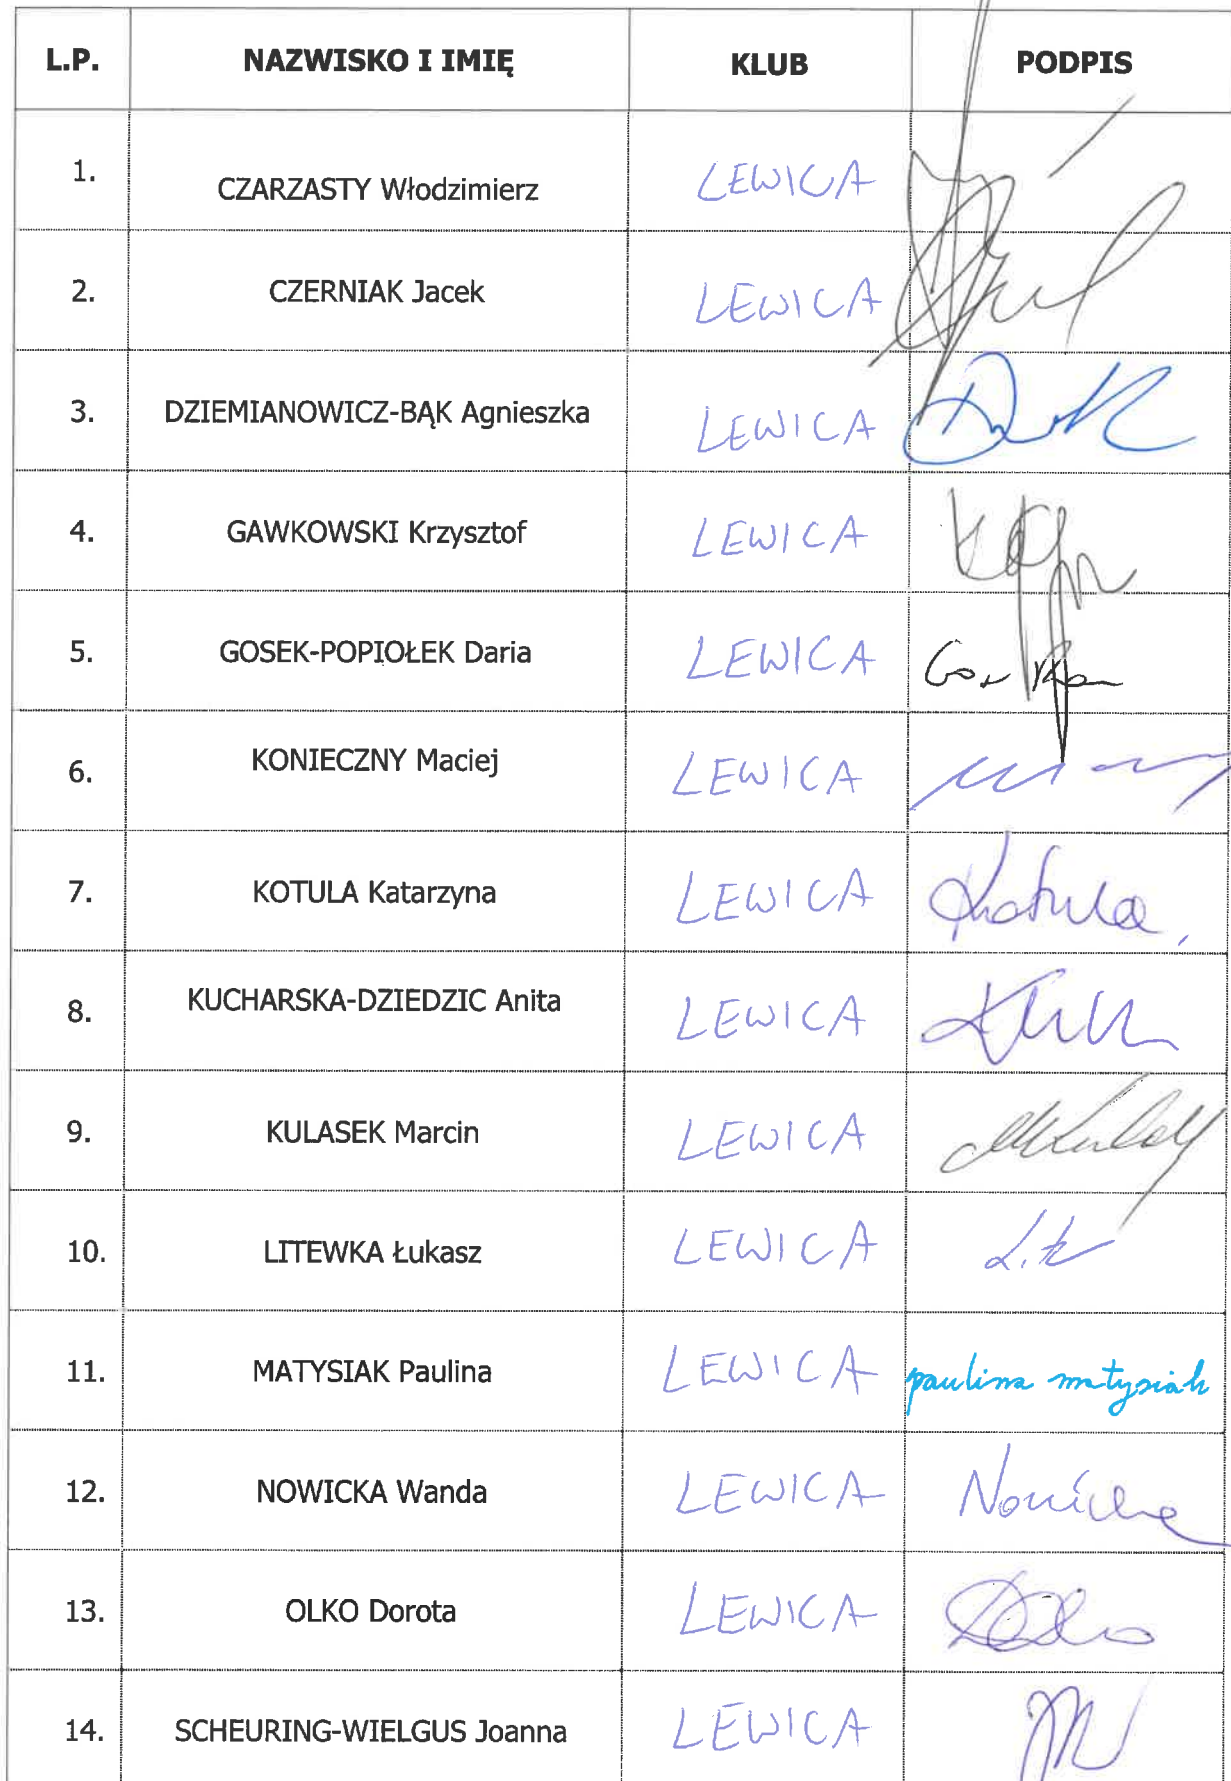 L.P. NAZWISKO I IMIĘ KLUB PODPIS
1. CZARZASTY Włodzimierz LEWICA
2. CZERNIAK Jacek LEWICA
3. DZIEMIANOWICZ-BĄK Agnieszka LEWICA
4. GAWKOWSKI Krzysztof LEWICA
5. GOSEK-POPIOŁEK Daria LEWICA
6. KONIECZNY Maciej LEWICA
7. KOTULA Katarzyna LEWICA Kotula
8. KUCHARSKA-DZIEDZIC Anita LEWICA
9. KULASEK Marcin LEWICA
10. LITEWKA Łukasz LEWICA
11. MATYSIAK Paulina LEWICA paulina matysiak
12. NOWICKA Wanda LEWICA Nowicka
13. OLKO Dorota LEWICA
14. SCHEURING-WIELGUS Joanna LEWICA